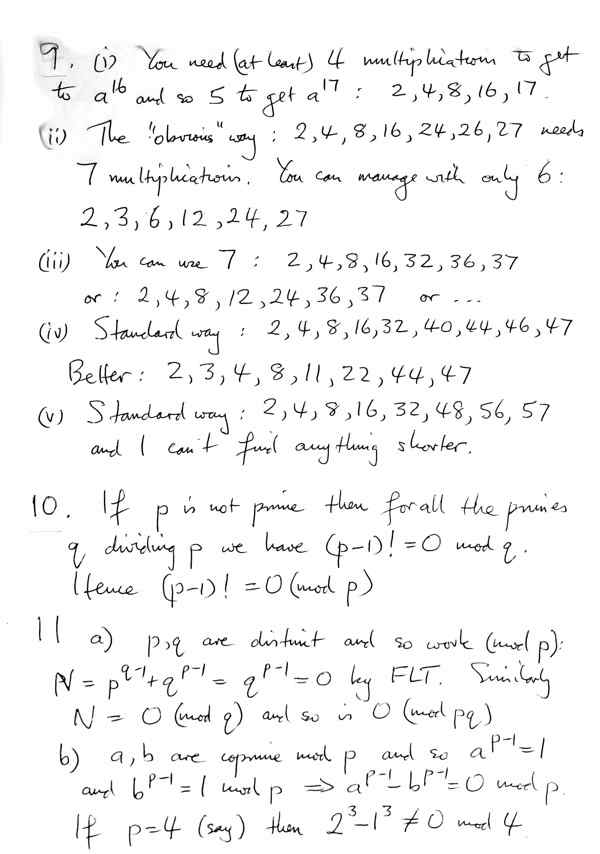 9. (i) You need (at least) 4 multiplications to get
to a^16 and so 5 to get a^17 : 2,4,8,16,17.
(ii) The "obvious" way : 2,4,8,16,24,26,27 needs
7 multiplications. You can manage with only 6:
2,3,6,12,24,27
(iii) You can use 7 : 2,4,8,16,32,36,37
or : 2,4,8,12,24,36,37 or ...
(iv) Standard way : 2,4,8,16,32,40,44,46,47
Better: 2,3,4,8,11,22,44,47
(v) Standard way : 2,4,8,16,32,48,56,57
and I can't find anything shorter.
10. If p is not prime then for all the primes
q dividing p we have (p-1)! = 0 mod q.
Hence (p-1)! = 0 (mod p)
11 a) p,q are distinct and so work (mod p):
N = p^q-1 + q^p-1 = q^p-1 = 0 by FLT. Similarly
N = 0 (mod q) and so is 0 (mod pq)
b) a,b are coprime mod p and so a^p-1 = 1
and b^p-1 = 1 mod p ⇒ a^p-1 - b^p-1 = 0 mod p.
If p=4 (say) then 2^3-1^3 ≠ 0 mod 4